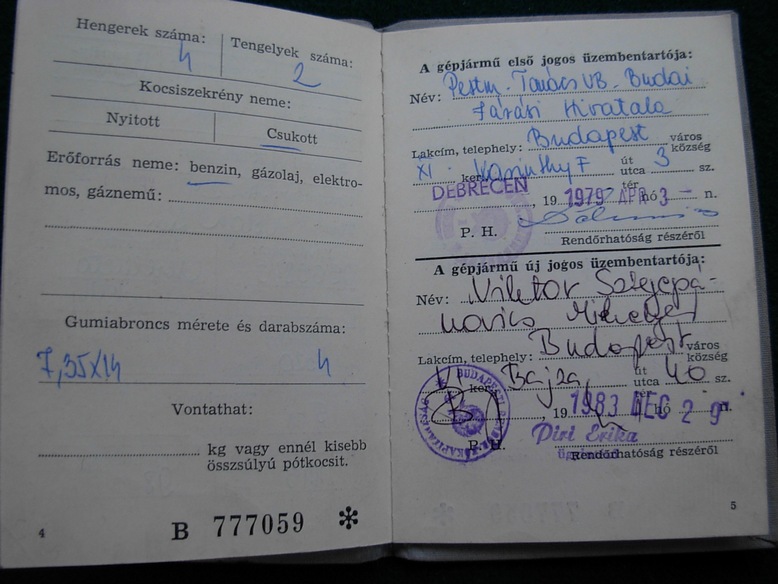 Hengerek száma: 4
Tengelyek száma: 2
Kocsiszekrény neme:
Nyitott
Csukott
Erőforrás neme: benzin, gázolaj, elektro-
mos, gáznemű:
Gumiabroncs mérete és darabszáma:
7,35x14 4
Vontathat:
kg vagy ennél kisebb
összsúlyú pótkocsit.
4
B 777059 *
A gépjármű első jogos üzembentartója:
Név: Pestm. Tanács VB. Budai
Járási Hivatala
Lakcím, telephely: Budapest város
község
XI. ker. Karinthy F út
utca
tér
3 sz.
DEBRECEN, 19 1979 APR hó 3 n.
P. H.
Rendőrhatóság részéről
A gépjármű új jogos üzembentartója:
Név: Viktor
Lakcím, telephely: Budapest város
község
ker. Bajza út
utca
40 sz.
, 19 1983 DEC hó 29 n.
Piri Erika
P. H.
Rendőrhatóság részéről
5